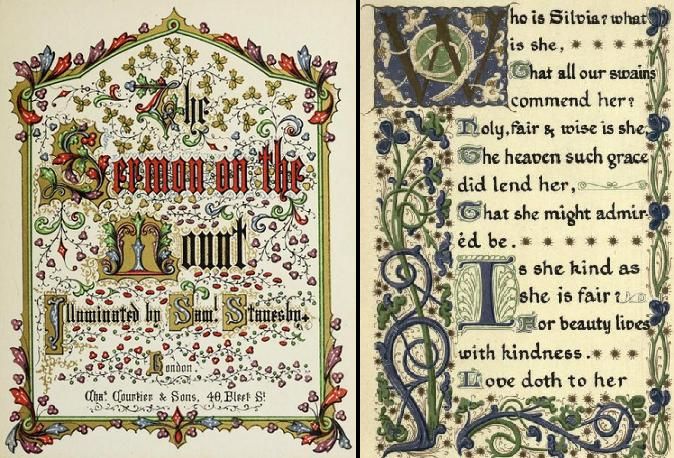 The
Sermon on the
Mount
Illuminated by Saml. Stanesby.
London.
Chas. Courtier & Sons, 40, Fleet St
Who is Silvia? what
is she,
That all our swains
commend her?
Holy, fair & wise is she,
The heaven such grace
did lend her,
That she might admir-
èd be.
Is she kind as
she is fair?
For beauty lives
with kindness.
Love doth to her